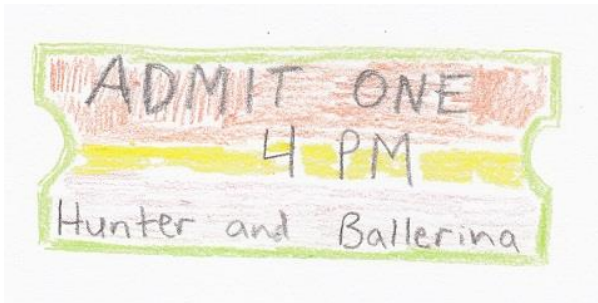 ADMIT ONE
4 PM
Hunter and Ballerina